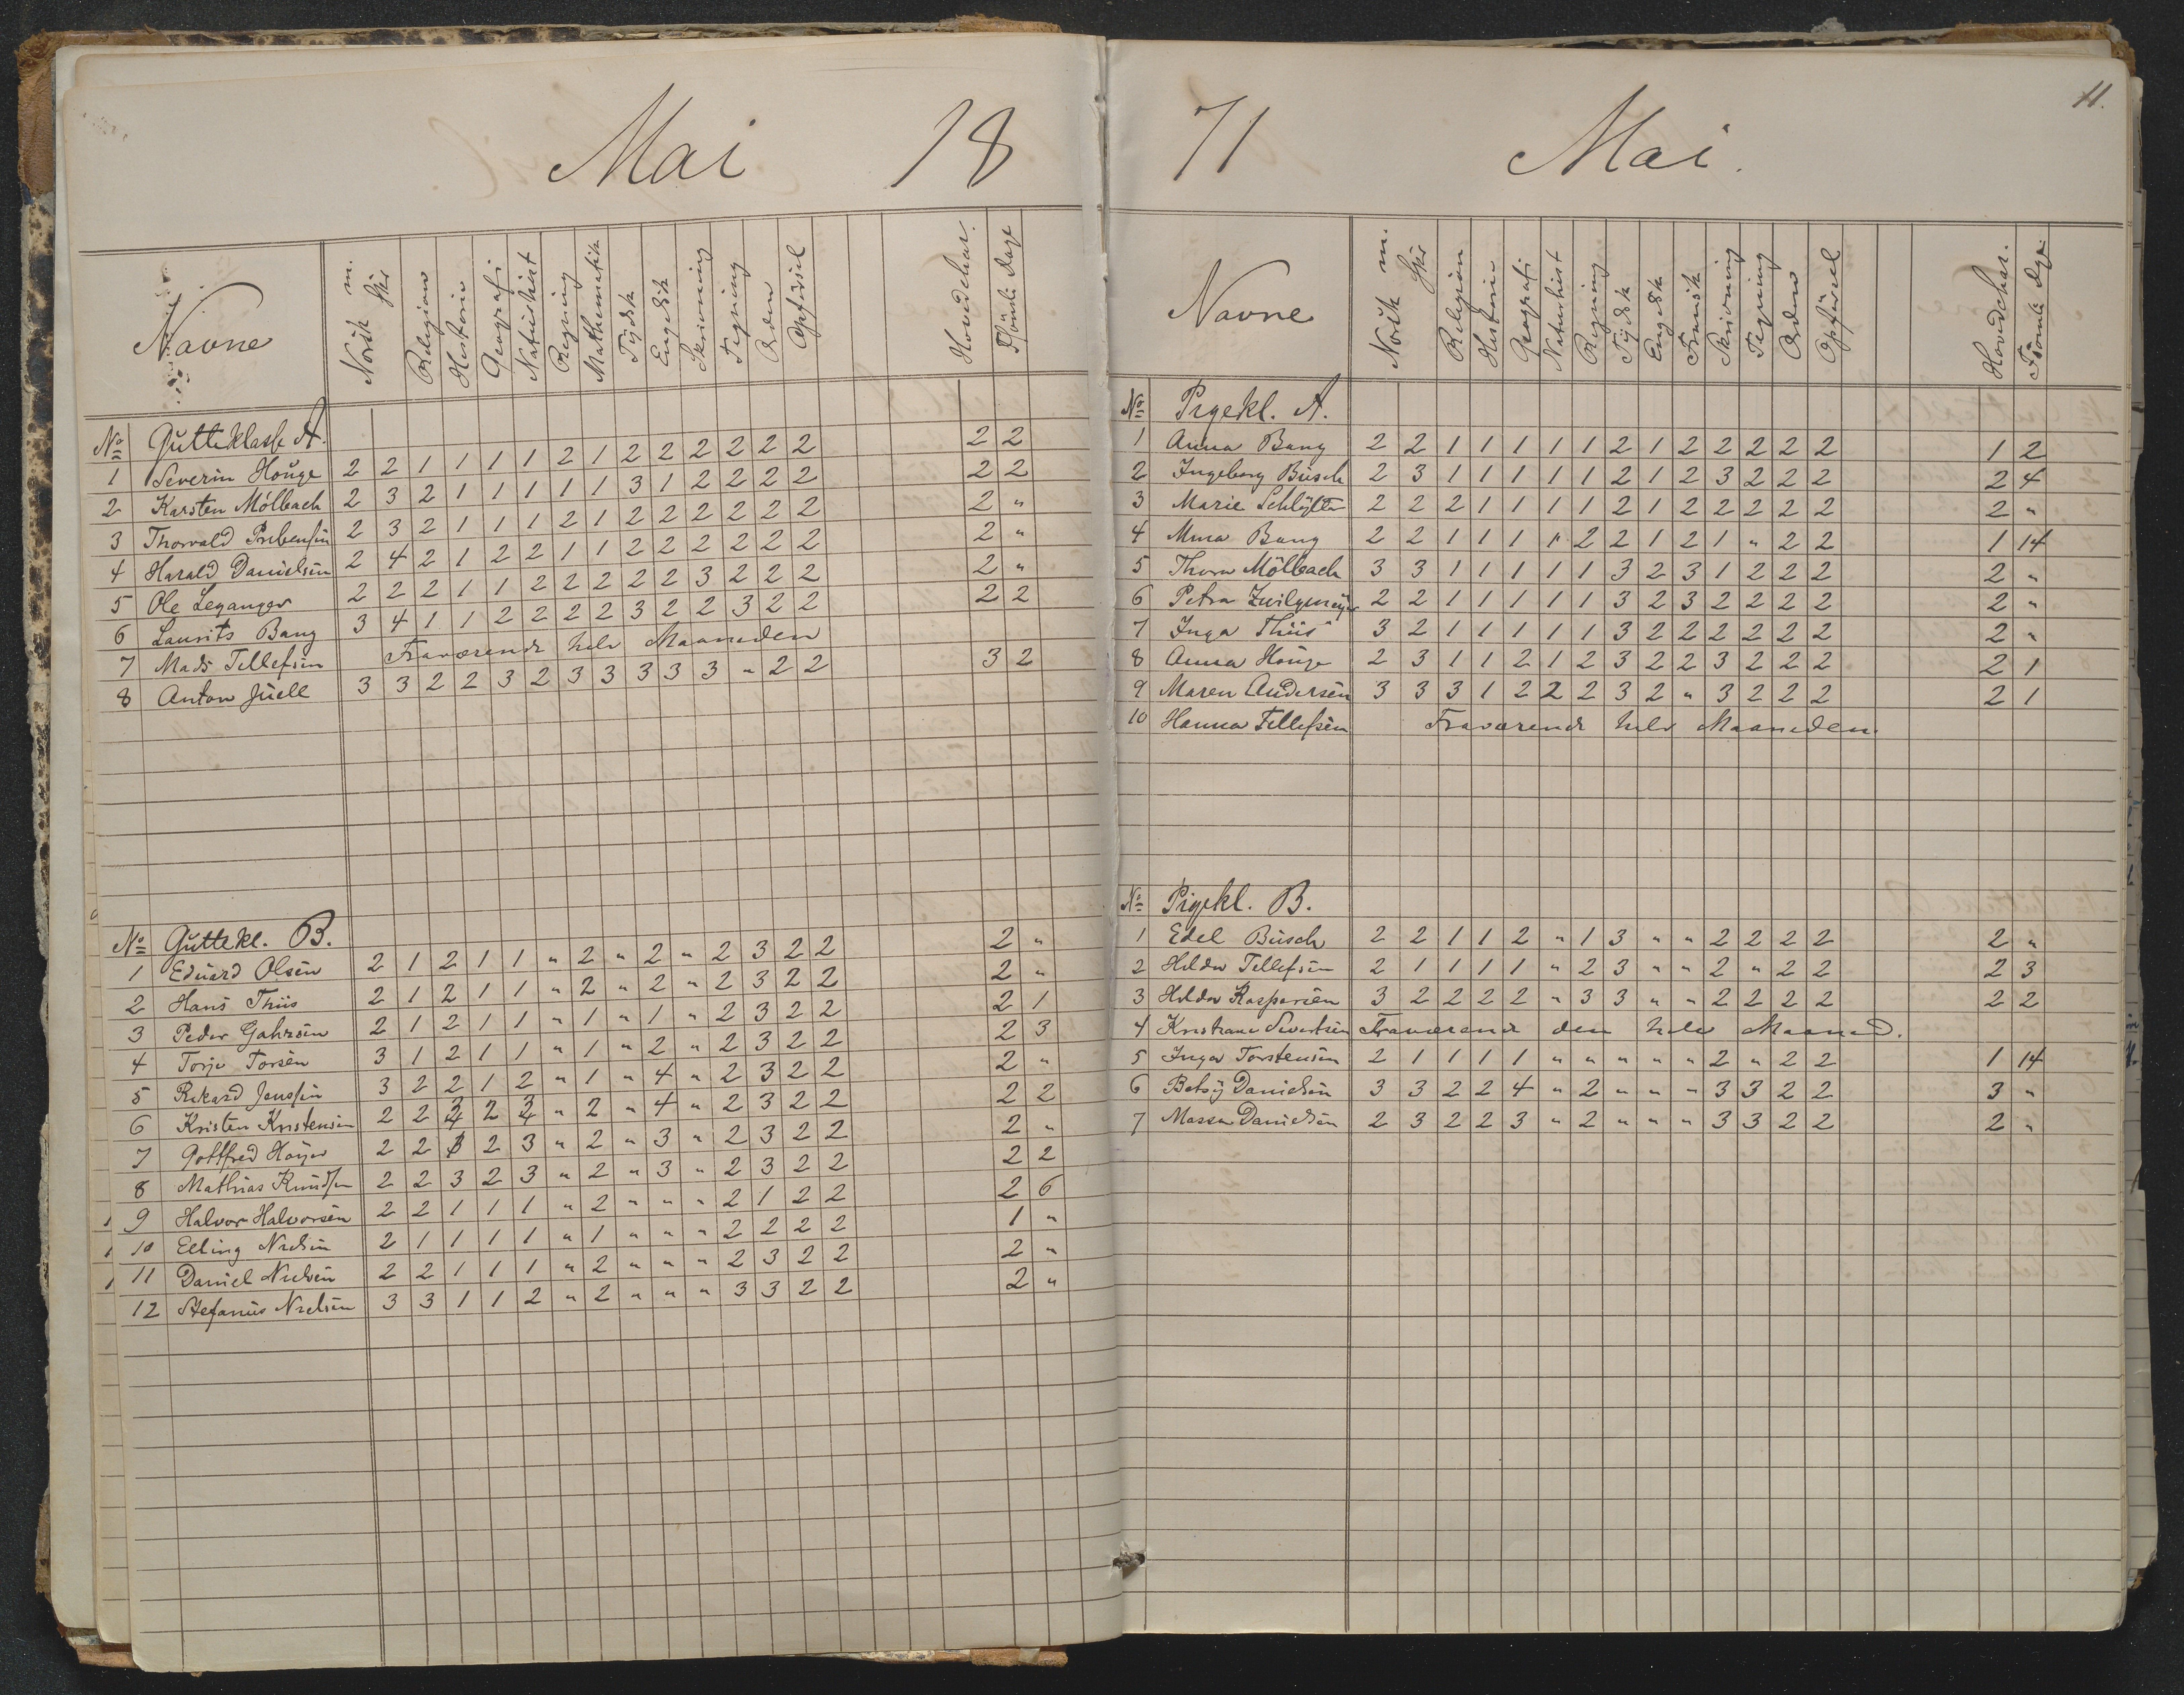 Mai 18
Navne | Norsk m. Skr | Religion | Historie | Geografi | Naturhist | Regning | Mathematik | Tydsk | Engelsk | Skrivning | Tegning | Orden | Opførsel | Hovedchar. | Fsömte Dage
No Gutteklasse A.
1 Severin Houge 2 2 1 1 1 1 2 1 2 2 2 2 2 2 2 2
2 Karsten Mölbach 2 3 2 1 1 1 1 1 3 1 2 2 2 2 2 2
3 Thorvald Prebensen 2 3 2 1 1 1 2 1 2 2 2 2 2 2 2 "
4 Harald Danielsen 2 4 2 1 2 2 1 1 2 2 2 2 2 2 2 "
5 Ole Leganger 2 2 2 1 1 2 2 2 2 2 3 2 2 2 2 "
6 Laurits Bang 3 4 1 1 2 2 2 2 3 2 2 3 2 2 2 2
7 Mads Tellefsen Fraværende hele Maaneden
8 Anton Juell 3 3 2 2 3 2 3 3 3 3 3 " 2 2 3 2
No Guttekl. B.
1 Eduard Olsen 2 1 2 1 1 " 2 " 2 " 2 3 2 2 2 "
2 Hans Thiis 2 1 2 1 1 " 2 " 2 " 2 3 2 2 2 "
3 Peder Gahrsen 2 1 2 1 1 " 1 " 1 " 2 3 2 2 2 1
4 Torje Torsen 3 1 2 1 1 " 1 " 2 " 2 3 2 2 2 3
5 Rikard Jenssen 3 2 2 1 2 " 1 " 4 " 2 3 2 2 2 "
6 Kristen Kristensen 2 2 3 2 3 " 2 " 4 " 2 3 2 2 2 2
7 Gottfred 2 2 3 2 3 " 2 " 3 " 2 3 2 2 2 "
8 Mathias Knudsen 2 2 3 2 3 " 2 " 3 " 2 3 2 2 2 2
9 Halvor Halvorsen 2 2 1 1 1 " 2 " " " 2 1 2 2 2 6
10 Elling Nielsen 2 1 1 1 1 " 1 " " " 2 2 2 2 1 "
11 Daniel Nielsen 2 2 1 1 1 " 2 " " " 2 3 2 2 2 "
12 Stefanus Nielsen 3 3 1 1 2 " 2 " " " 3 3 2 2 2 "
71 Mai.
11.
Navne | Norsk m. Skr | Religion | Historie | Geografi | Naturhist | Regning | Tydsk | Engelsk | Fransk | Skrivning | Tegning | Orden | Opførsel | Hovedchar. | Fsömte Dage
No Pigekl. A.
1 Anna Bang 2 2 1 1 1 1 1 2 1 2 2 2 2 2 1 2
2 Ingeborg Busch 2 3 1 1 1 1 1 2 1 2 3 2 2 2 2 4
3 Marie Schlytter 2 2 2 1 1 1 1 2 1 2 2 2 2 2 2 "
4 Mina Bang 2 2 1 1 1 1 2 2 1 2 1 " 2 2 1 14
5 Thora Mölbach 3 3 1 1 1 1 1 3 2 3 1 2 2 2 2 "
6 Petra Zwilgmeyer 2 2 1 1 1 1 1 3 2 3 2 2 2 2 2 "
7 Inga Thiis 3 2 1 1 1 1 1 3 2 2 2 2 2 2 2 "
8 Anna Houge 2 3 1 1 2 1 2 3 2 2 3 2 2 2 2 1
9 Maren Andersen 3 3 3 1 2 2 2 3 2 " 3 2 2 2 2 1
10 Hanna Tellefsen Fraværende hele Maaneden.
No Pigekl. B.
1 Edel Busch 2 2 1 1 2 " 1 3 " " 2 2 2 2 2 "
2 Hilda Tellefsen 2 1 1 1 1 " 2 3 " " 2 " 2 2 2 3
3 Hilda Kaspersen 3 2 2 2 2 " 3 3 " " 2 2 2 2 2 2
4 Kristiane Sivertsen Fraværende den hele Maaned.
5 Inga Torstensen 2 1 1 1 1 " " " " " 2 " 2 2 1 14
6 Betsy Danielsen 3 3 2 2 4 " 2 " " " 3 3 2 2 3 "
7 Massa Danielsen 2 3 2 2 3 " 2 " " " 3 3 2 2 2 "